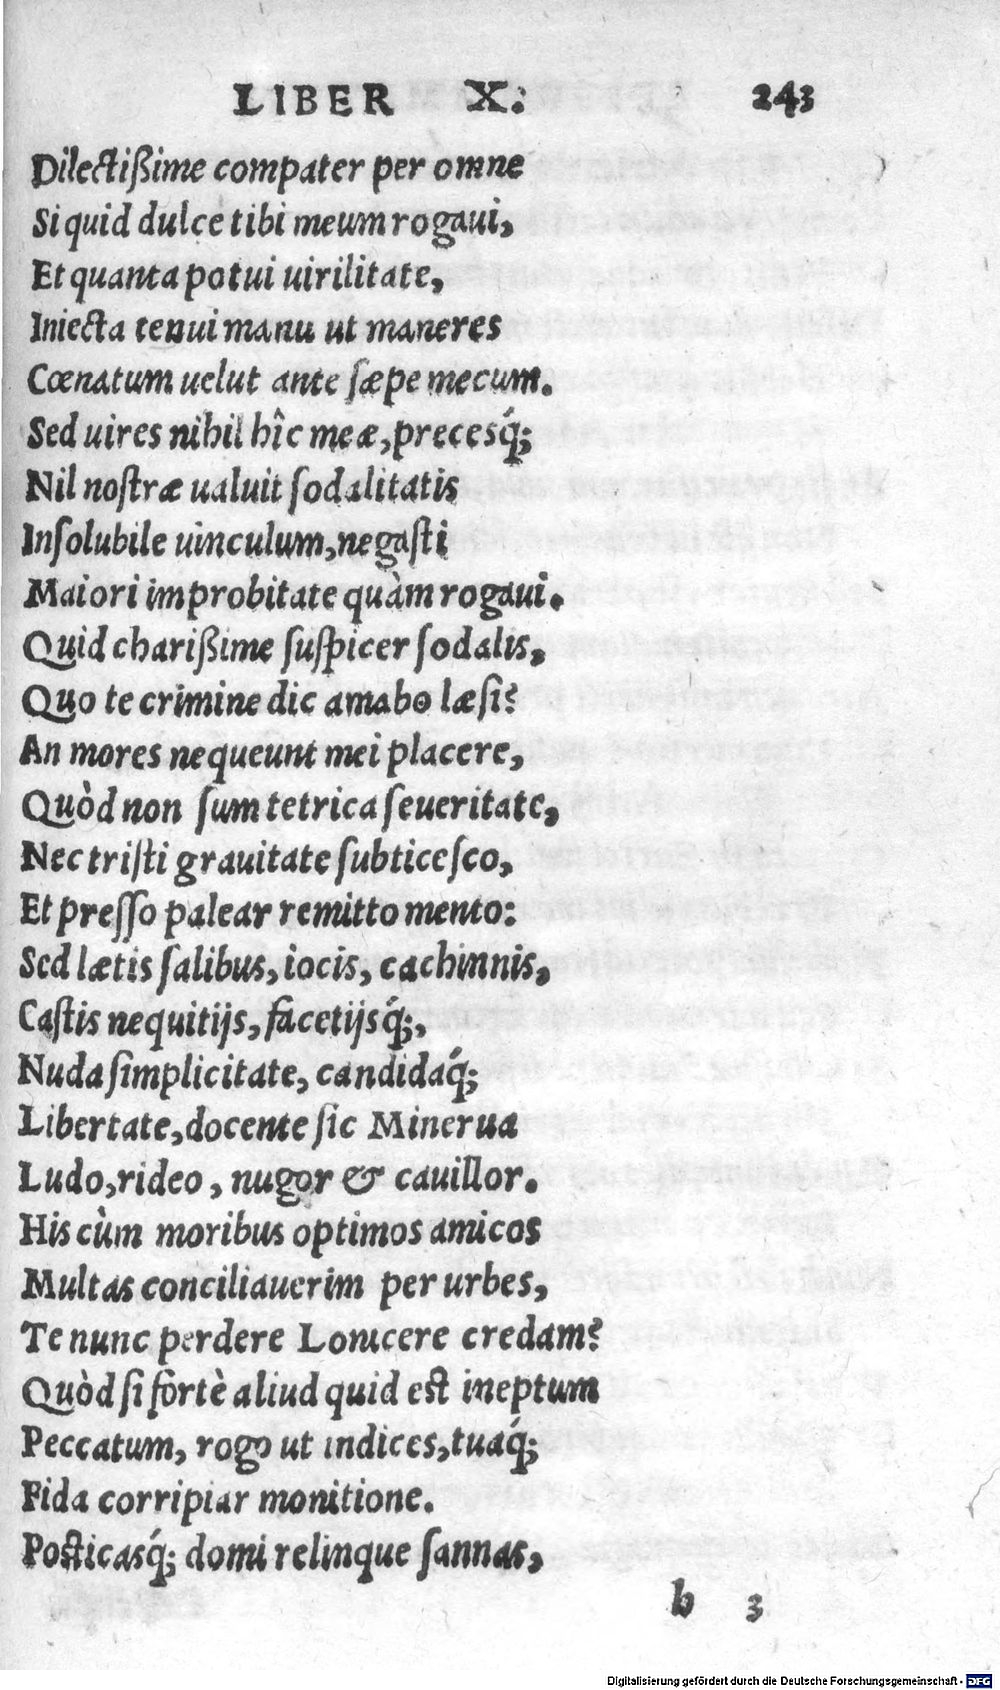 LIBER X. 243
Dilectißime compater per omne
Si quid dulce tibi meum rogaui,
Et quanta potui uirilitate,
Iniecta tenui manu ut maneres
Cœnatum uelut ante sæpe mecum.
Sed uires nihil hîc meæ, precesq́;
Nil nostræ ualuit sodalitatis
Insolubile uinculum, negasti
Maiori improbitate quàm rogaui.
Quid charißime suspicer sodalis,
Quo te crimine dic amabo læsi?
An mores nequeunt mei placere,
Quòd non sum tetrica seueritate,
Nec tristi grauitate subticesco,
Et presso palear remitto mento:
Sed lætis salibus, iocis, cachinnis,
Castis nequitijs, facetijsq́;,
Nuda simplicitate, candidaq́;
Libertate, docente sic Minerua
Ludo, rideo, nugor & cauillor.
His cùm moribus optimos amicos
Multas conciliauerim per urbes,
Te nunc perdere Lonicere credam?
Quòd si fortè aliud quid est ineptum
Peccatum, rogo ut indices, tuaq́;
Fida corripiar monitione.
Posticasq́; domi relinque sannas,
b 3
Digitalisierung gefördert durch die Deutsche Forschungsgemeinschaft - DFG